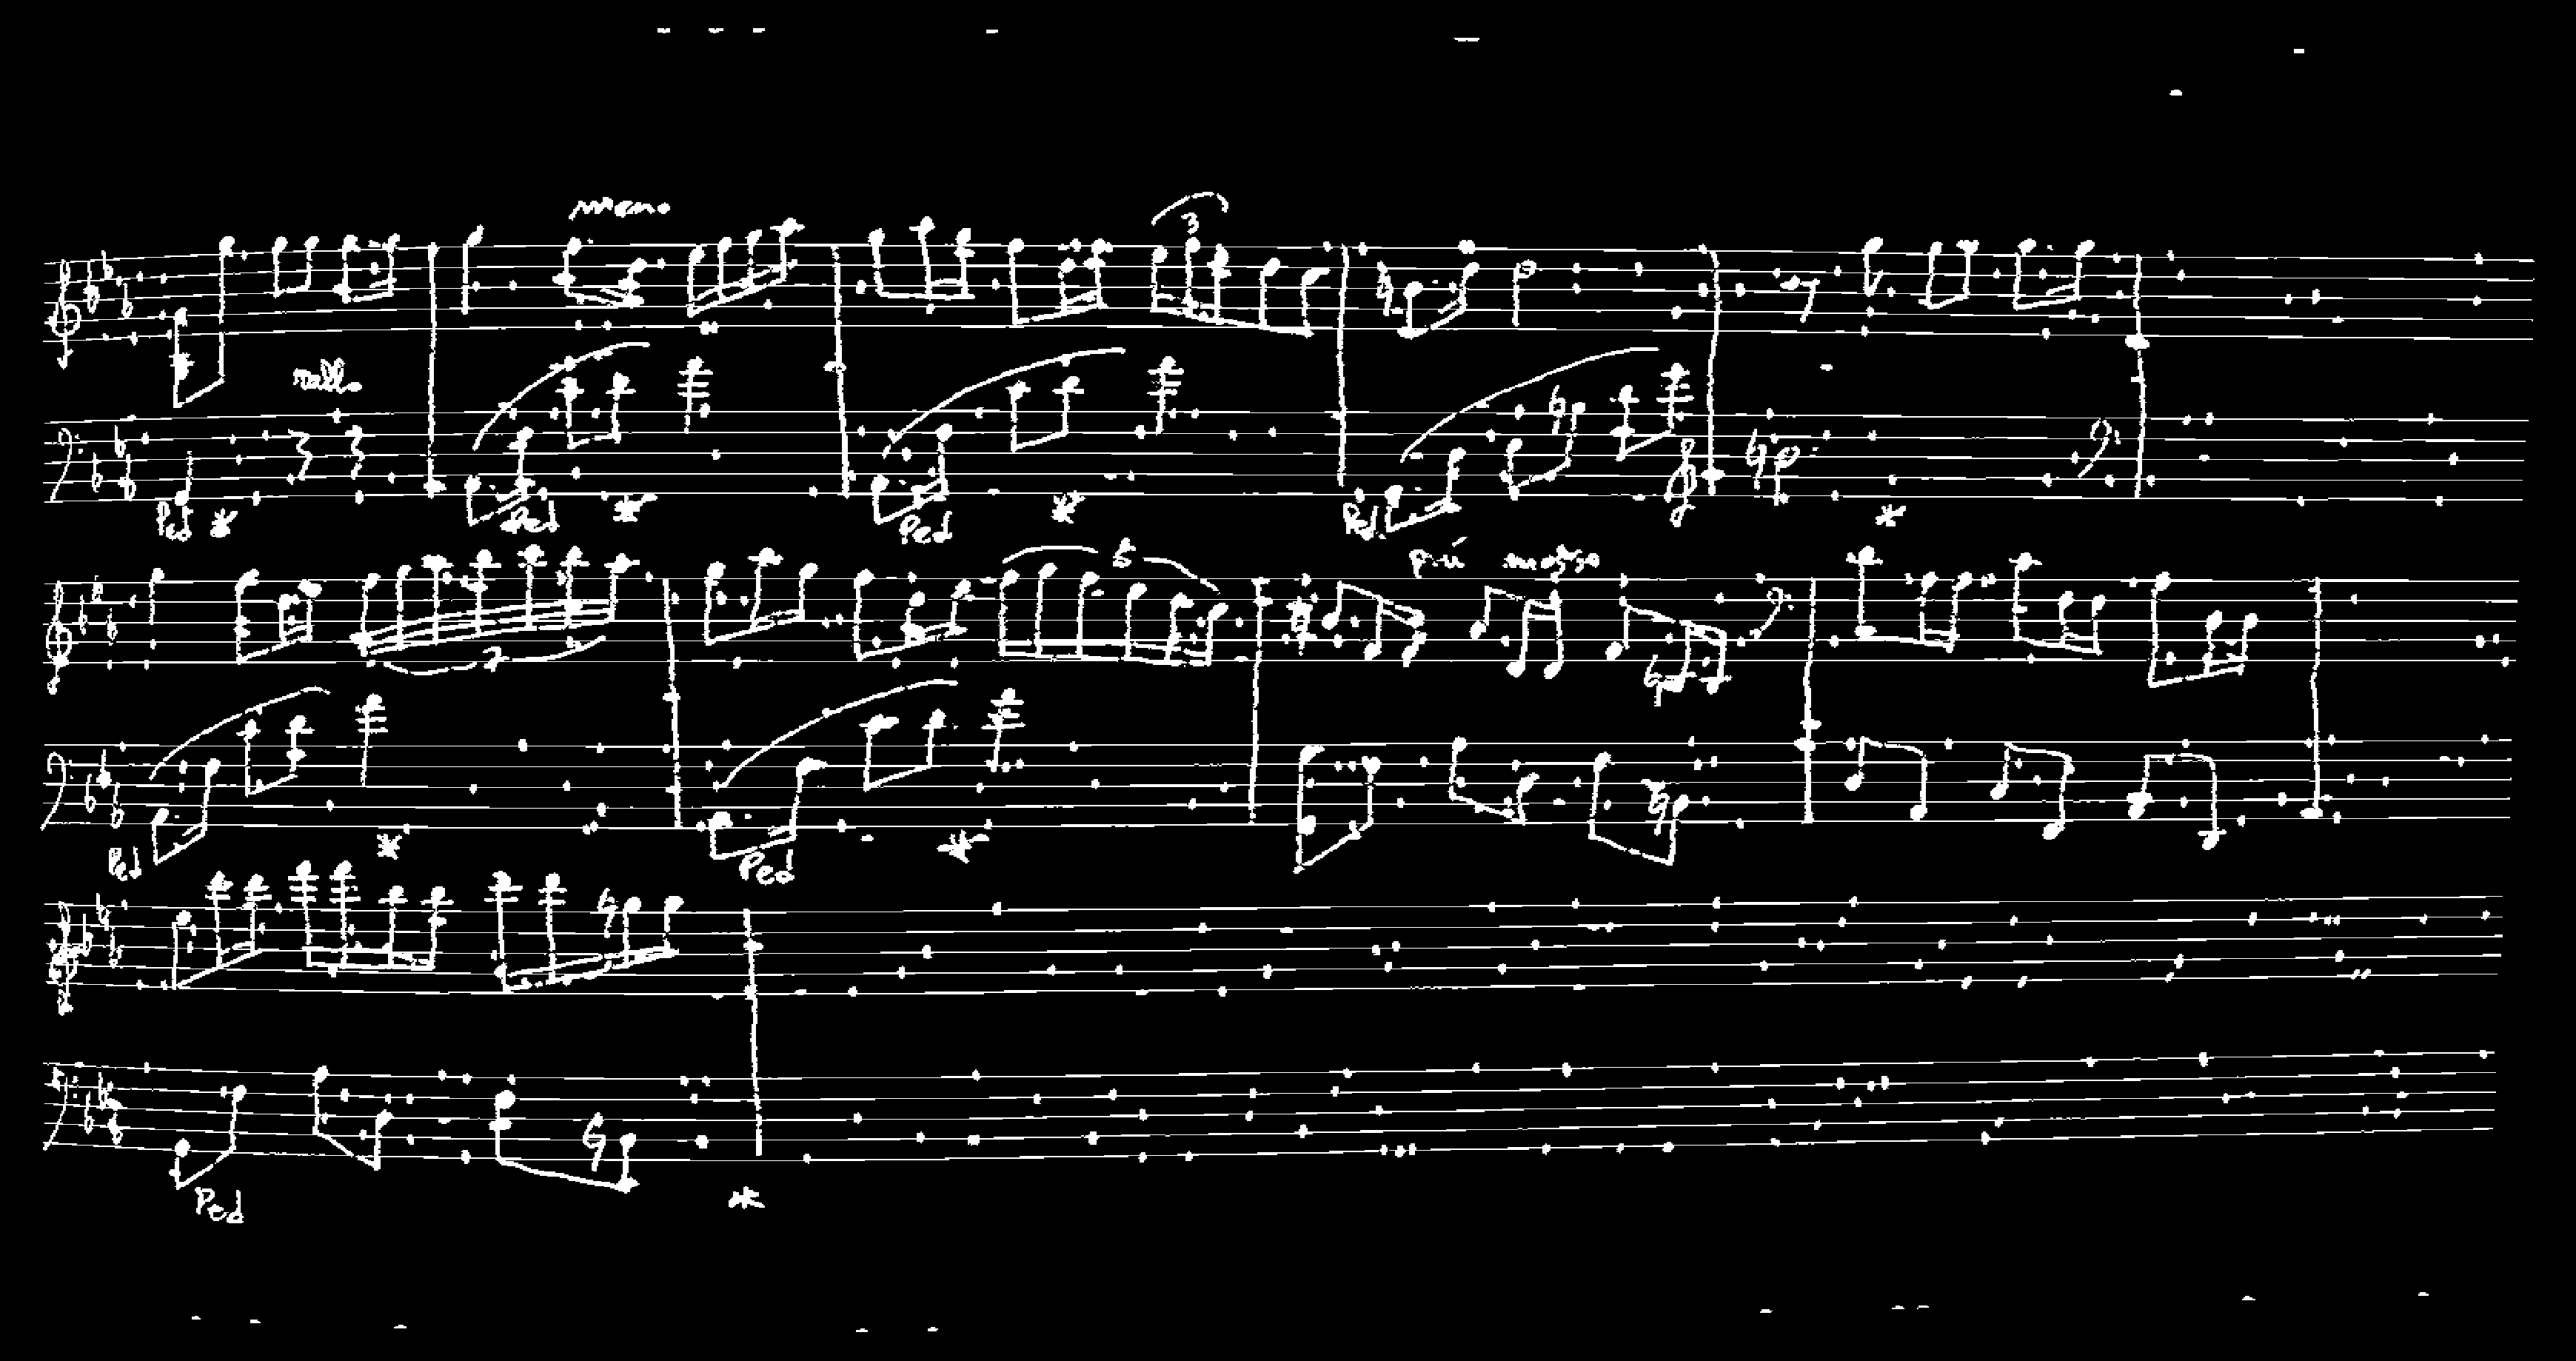 meno
3
rall.
Ped * Ped * Ped * Ped. *
5 più mosso
7
Ped * Ped *
Ped *